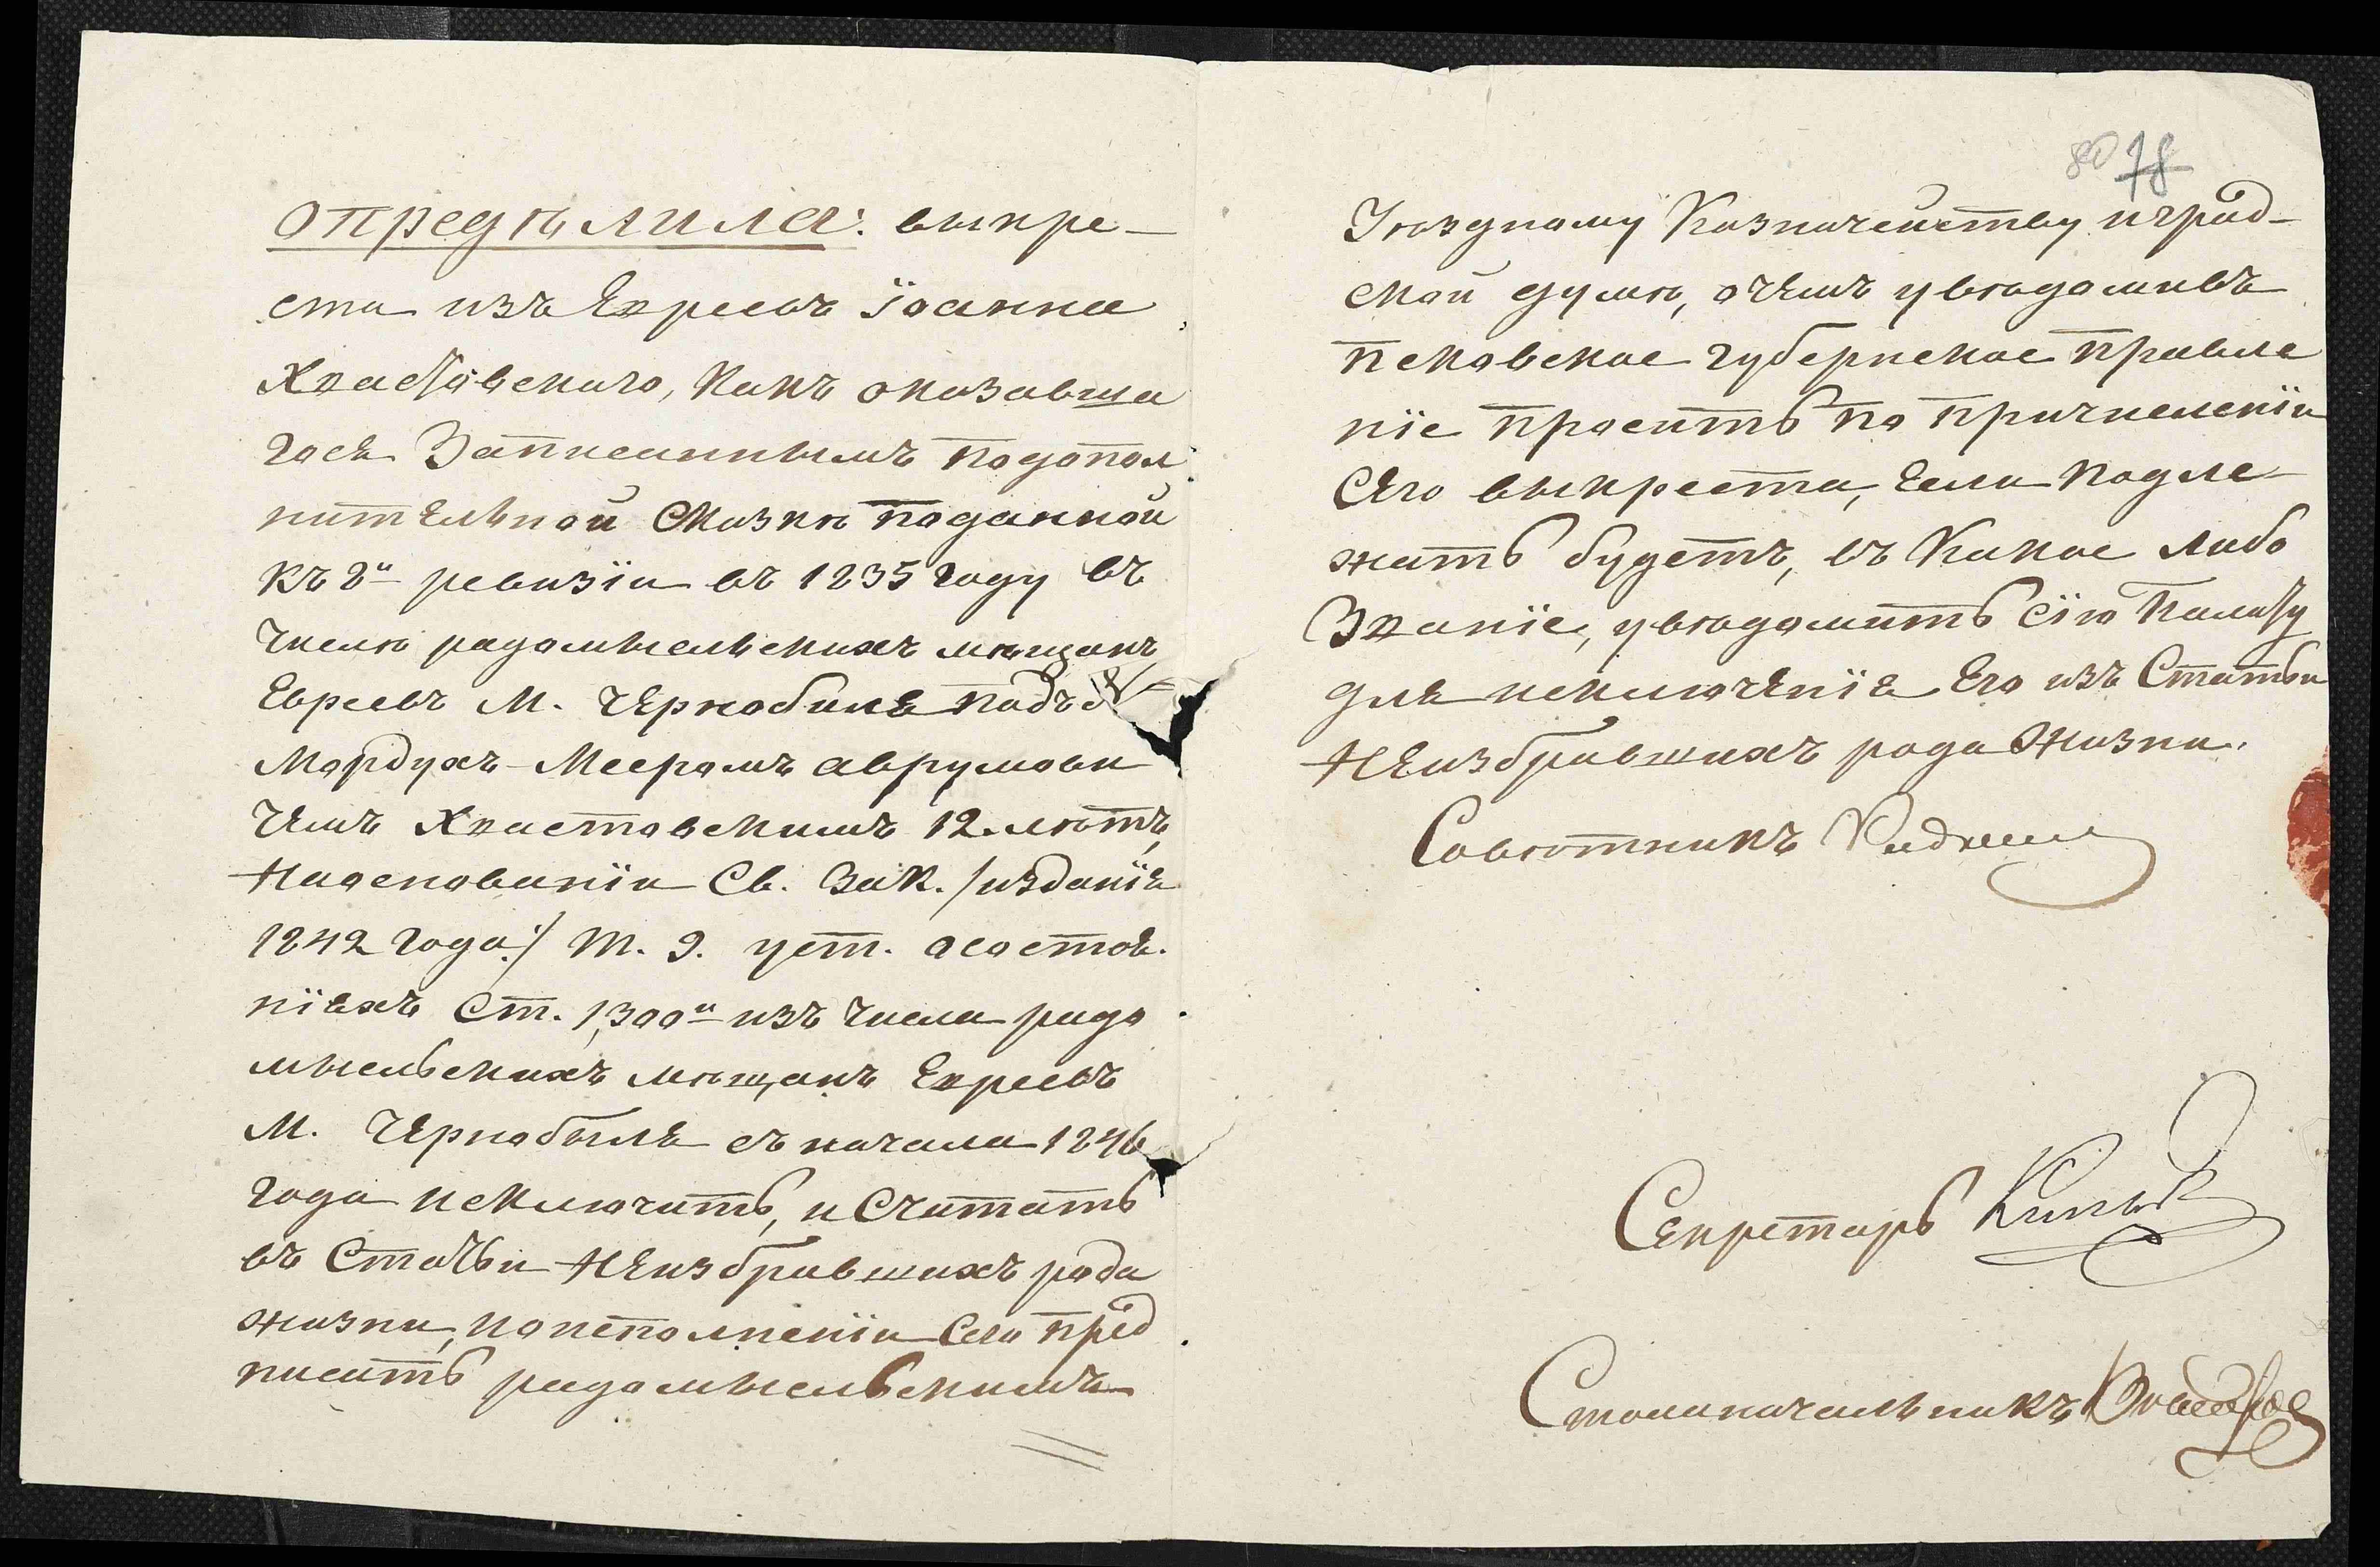 опредѣлила: выкре-
ста изъ Евреевъ Іоанна
Хвастовскаго, какъ оказавша
гося записаннымъ подопол
нительной сказкѣ поданной
къ 8й ревизіи въ 1835 году въ
числѣ радомысльскихъ мѣщанъ
Евреевъ М. Чернобыля подъ №
Мордухъ-Мееромъ Аврумови
чемъ Хвастовскимъ 12 лѣтъ,
наоснованіи Св. Зак. /изданія
1842 года:/ Т. 9. уст. осостоя.
ніяхъ Ст. 1300й изъ числа радо
мысльскихъ мѣщанъ Евреевъ
М. Чернобыля съ начала 1846
года исключить, и считать
въ статьи неизбравшихъ рода
жизни, поисполненіи сего пред
писать радомысльскимъ
80 78
Уѣздному Казначейству иград-
ской думѣ, очемъ увѣдомивъ
псковское губернское правле
ніе просить по причисленіи
сего выкреста, если подле-
жать будетъ, въ какое либо
званіе, увѣдомить сію палату
для исключенія его изъ статьи
неизбравшихъ рода жизни.
Совѣтникъ
Секретарь
Столоначальникъ